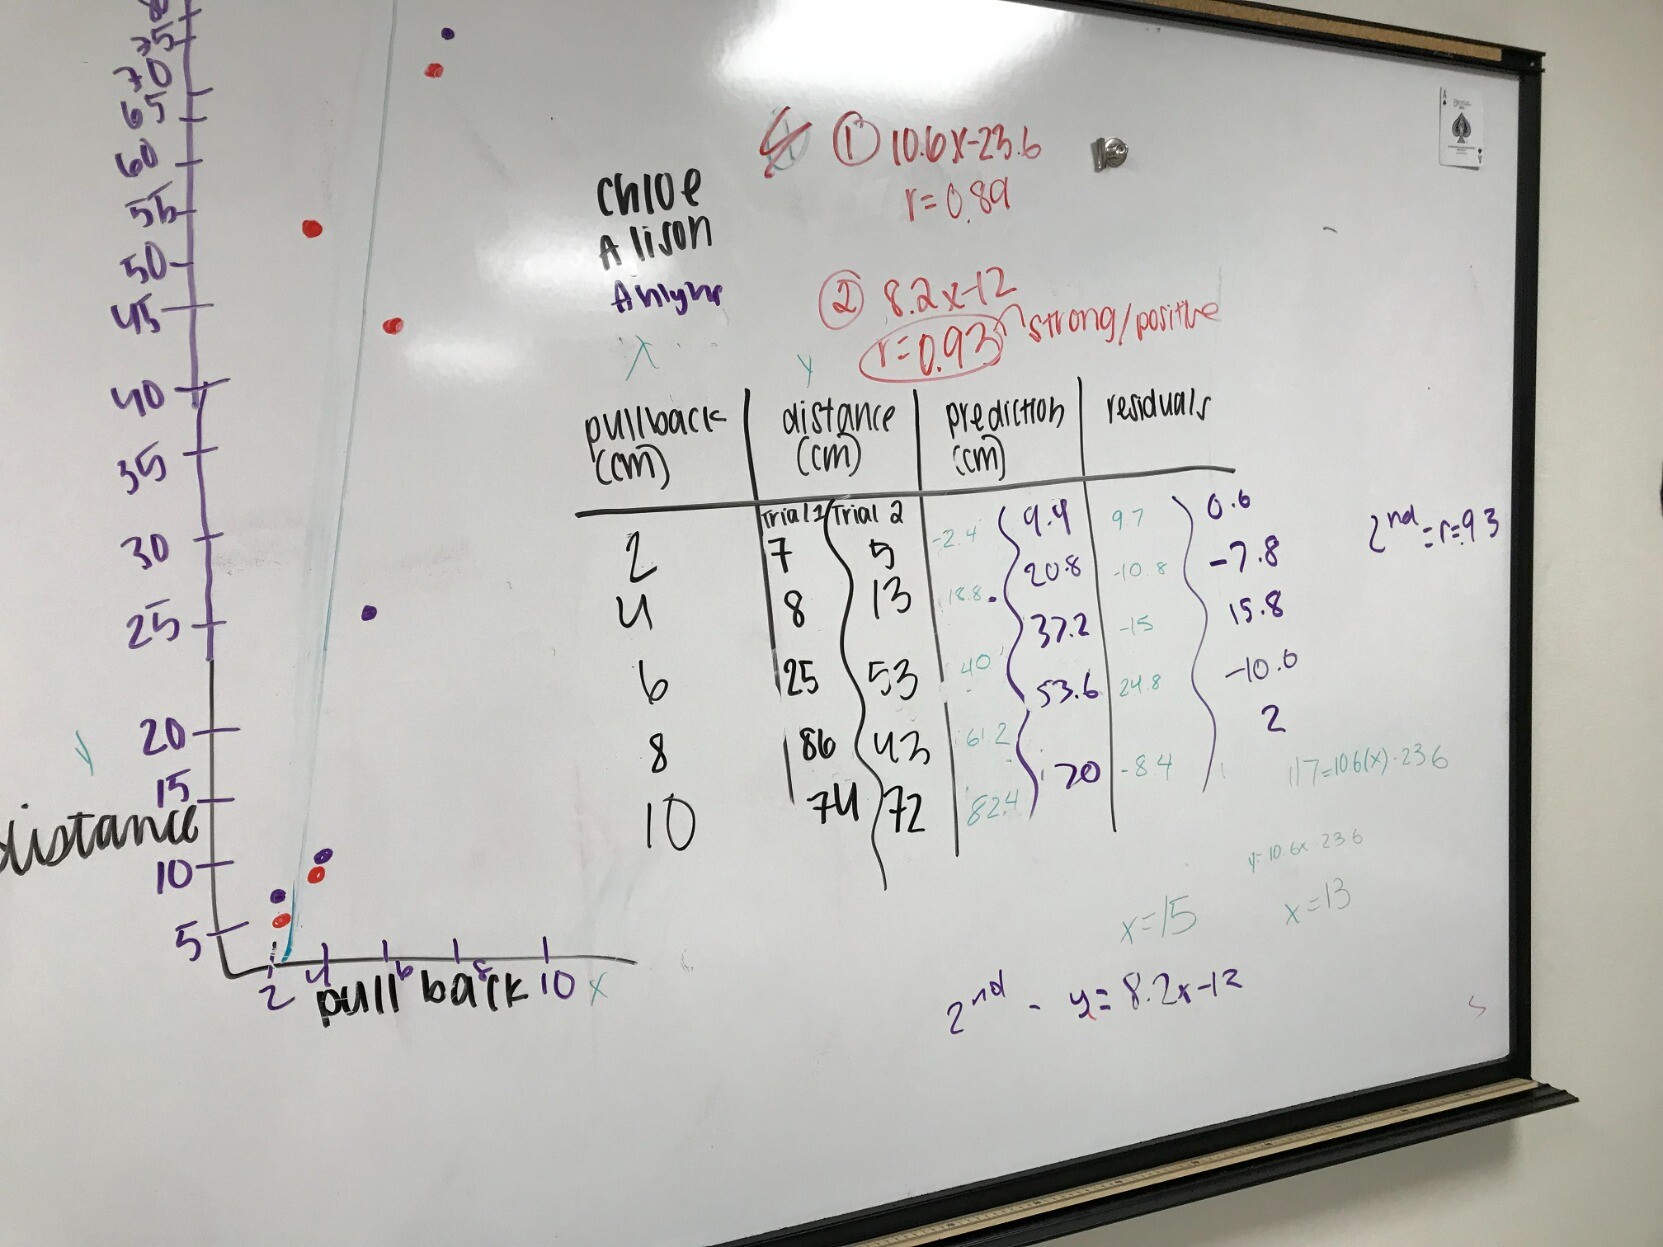 75
70
65
60
55
50
45
40
35
30
25
20
15
10
5
y
distance
2 4 6 8 10 x
pull back
Chloe
Alison
① 10.6x-23.6
r=0.89
② 8.2x-12
r=0.93 strong/positive
x y
pullback (cm) distance (cm) prediction (cm) residuals
Trial 1 Trial 2
2 7 5 -2.4 4.4 9.7 0.6
4 8 13 18.8 20.8 -10.8 -7.8
6 25 53 40 37.2 -15 15.8
8 86 43 61.2 53.6 24.8 -10.6
10 74 72 82.4 70 -8.4 2
2nd = r=.93
117=10.6(x)-23.6
y=10.6x-23.6
x=15 x=13
2nd - y=8.2x-12
A